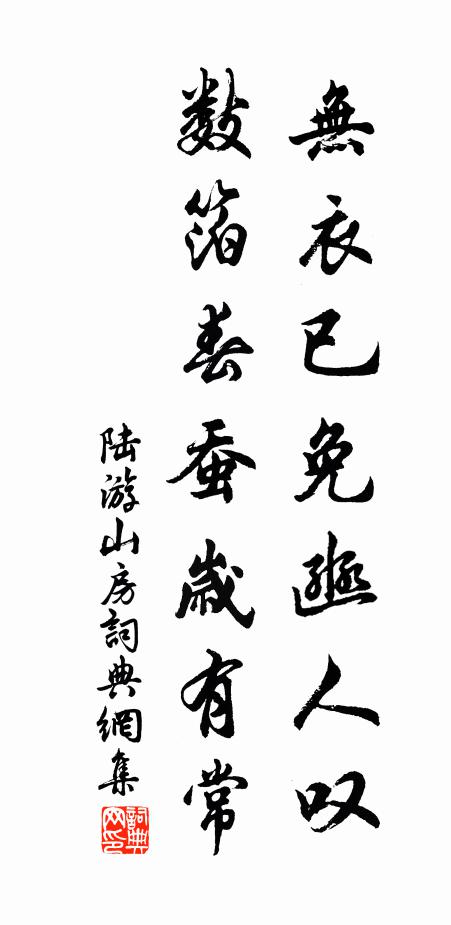 無衣已免豳人叹
数箔春蚕歲有常
陆游山房詞典網集
詞典网印